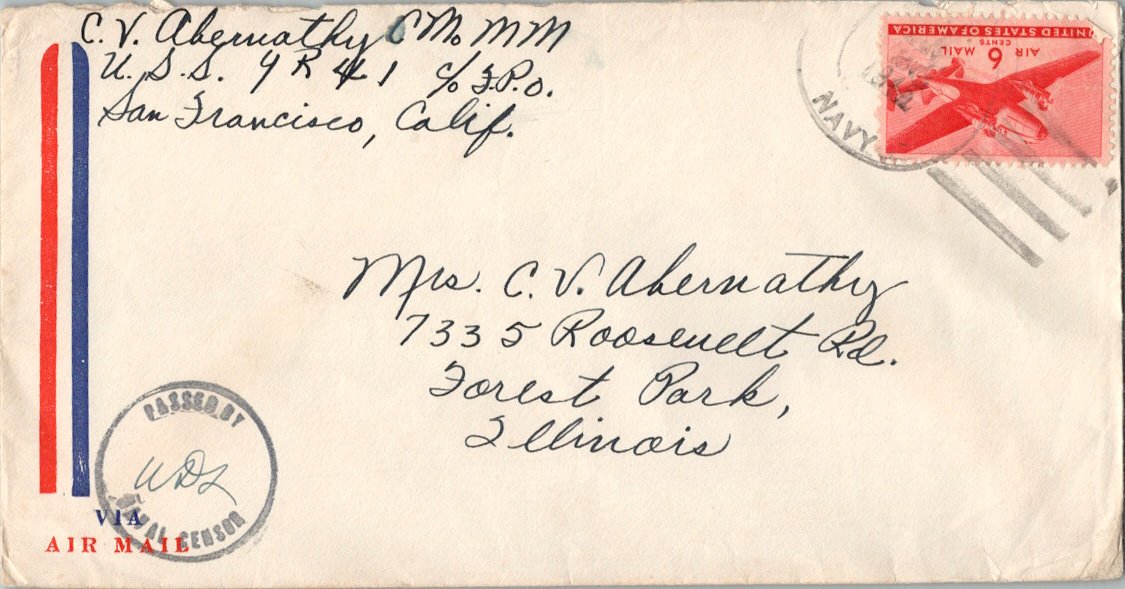 C. V. Abernathy C M. M M
U. S. S. Y R 41 c/o F.P.O.
San Francisco, Calif.
UNITED STATES OF AMERICA
AIR 6 MAIL
CENTS
NAVY
Mrs. C. V. Abernathy
7335 Roosevelt Rd.
Forest Park,
Illinois
PASSED BY
WDL
NAVAL CENSOR
VIA
AIR MAIL